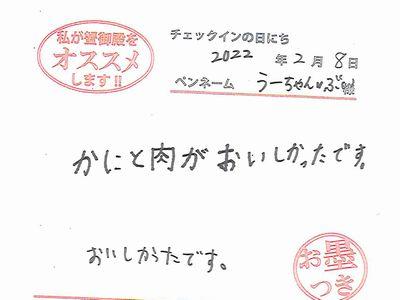 私が蟹御殿を
オススメ
します!!
チェックインの日にち
2022 年 2月 8日
ペンネーム うーちゃん
かにと肉がおいしかったです。
おいしかったです。
お墨
つき